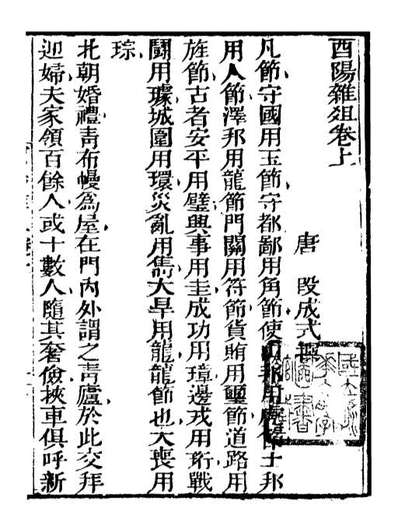 酉陽雜俎卷上
唐 段成式撰
凡節守國用玉節守都鄙用角節使山邦用虎節土邦
用人節澤邦用龍節門關用符節貨賄用璽節道路用
旌節古者安平用璧興事用圭成功用璋邊戎用珩戰
鬭用璩城圍用環災亂用雋大旱用龍龍節也大喪用
琮
北朝婚禮青布幔爲屋在門內外謂之青廬於此交拜
迎婦夫家領百餘人或十數人隨其奢儉挾車俱呼新